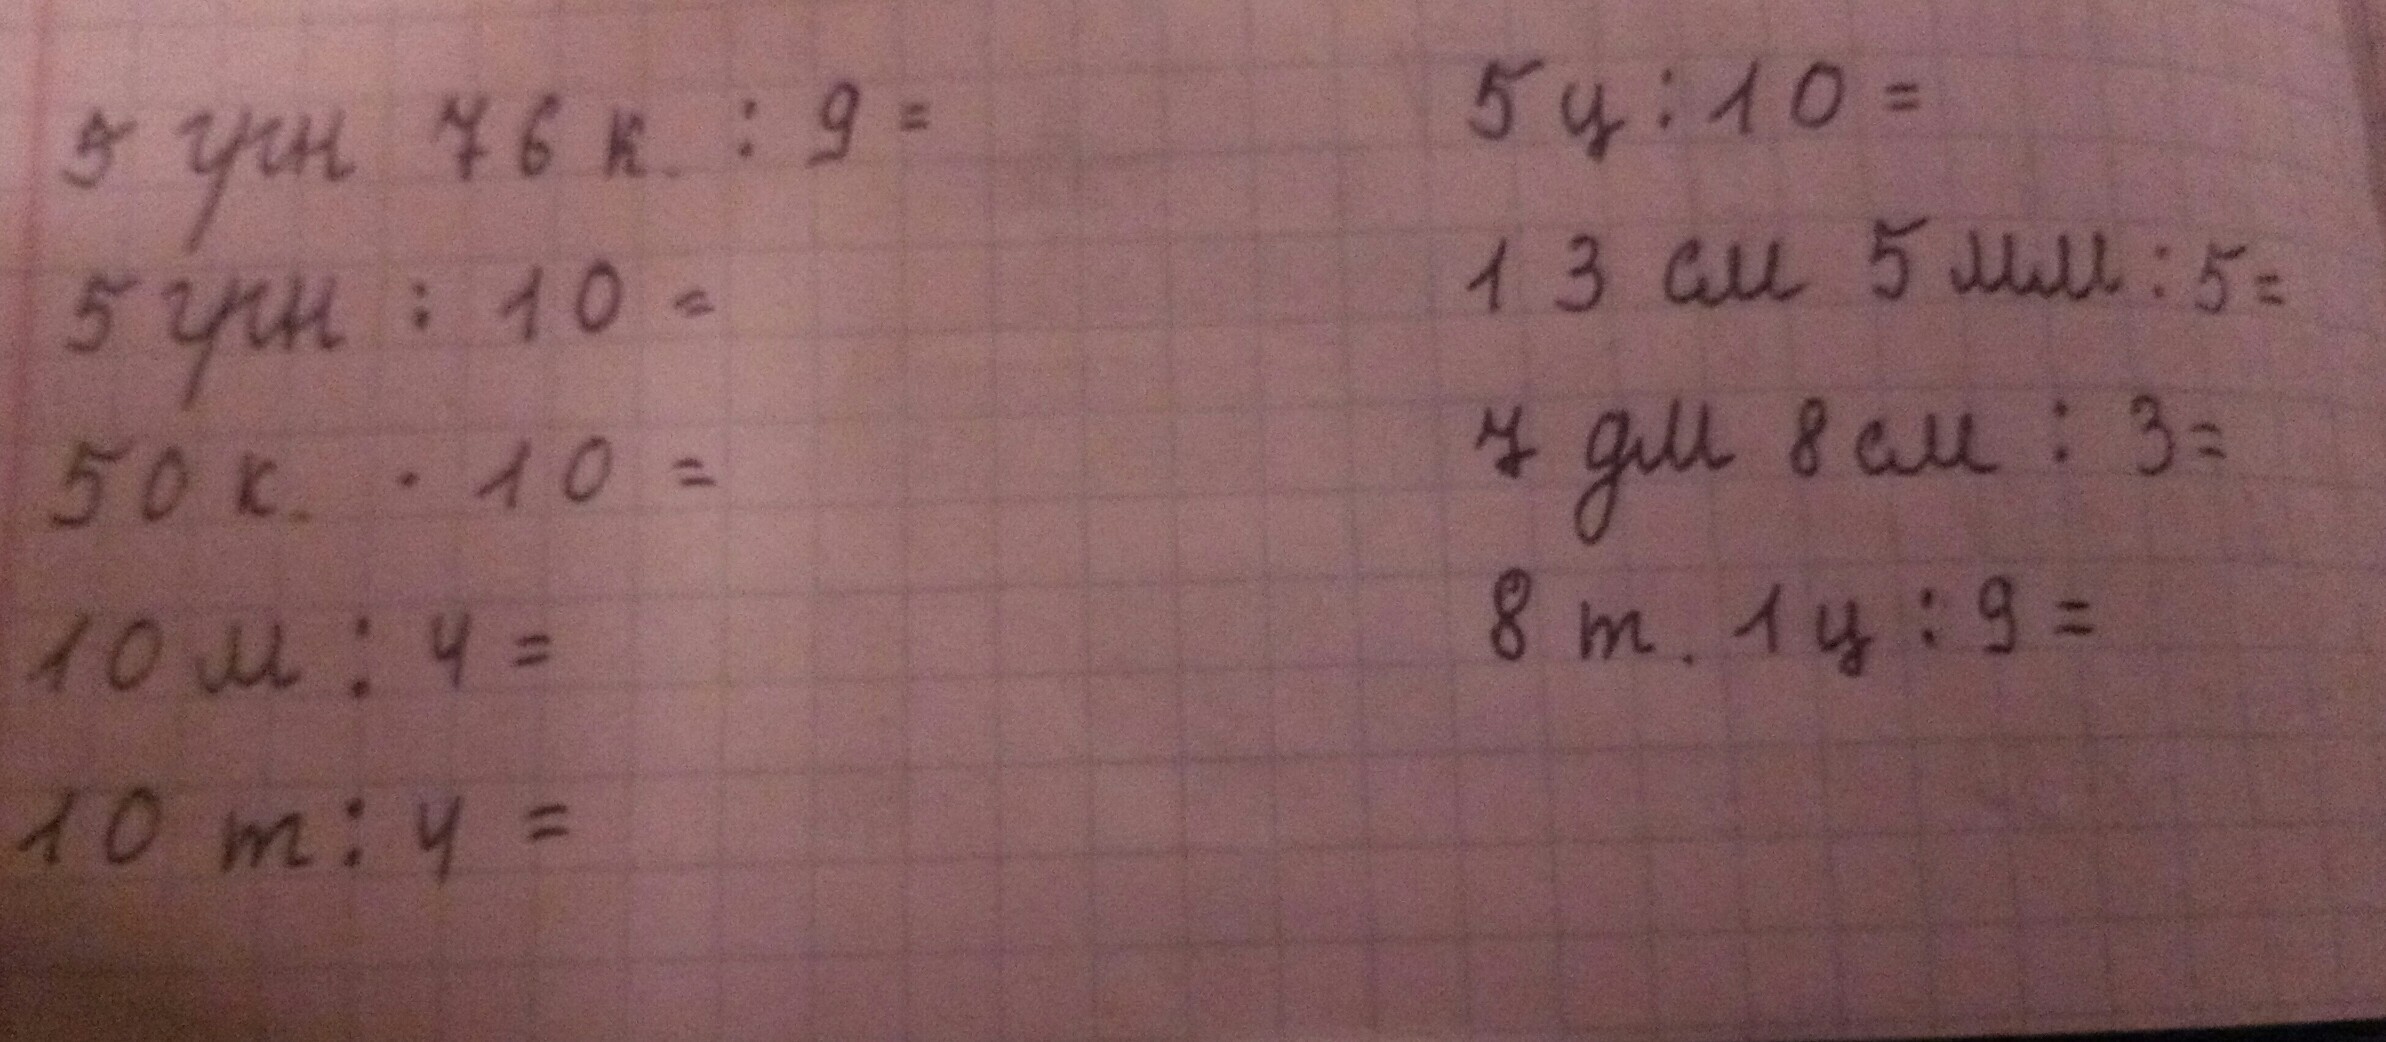 5 грн 76 к. : 9 =
5 грн : 10 =
50 к. · 10 =
10 м : 4 =
10 т : 4 =
5 ц : 10 =
13 см 5 мм : 5 =
7 дм 8 см : 3 =
8 т. 1 ц : 9 =